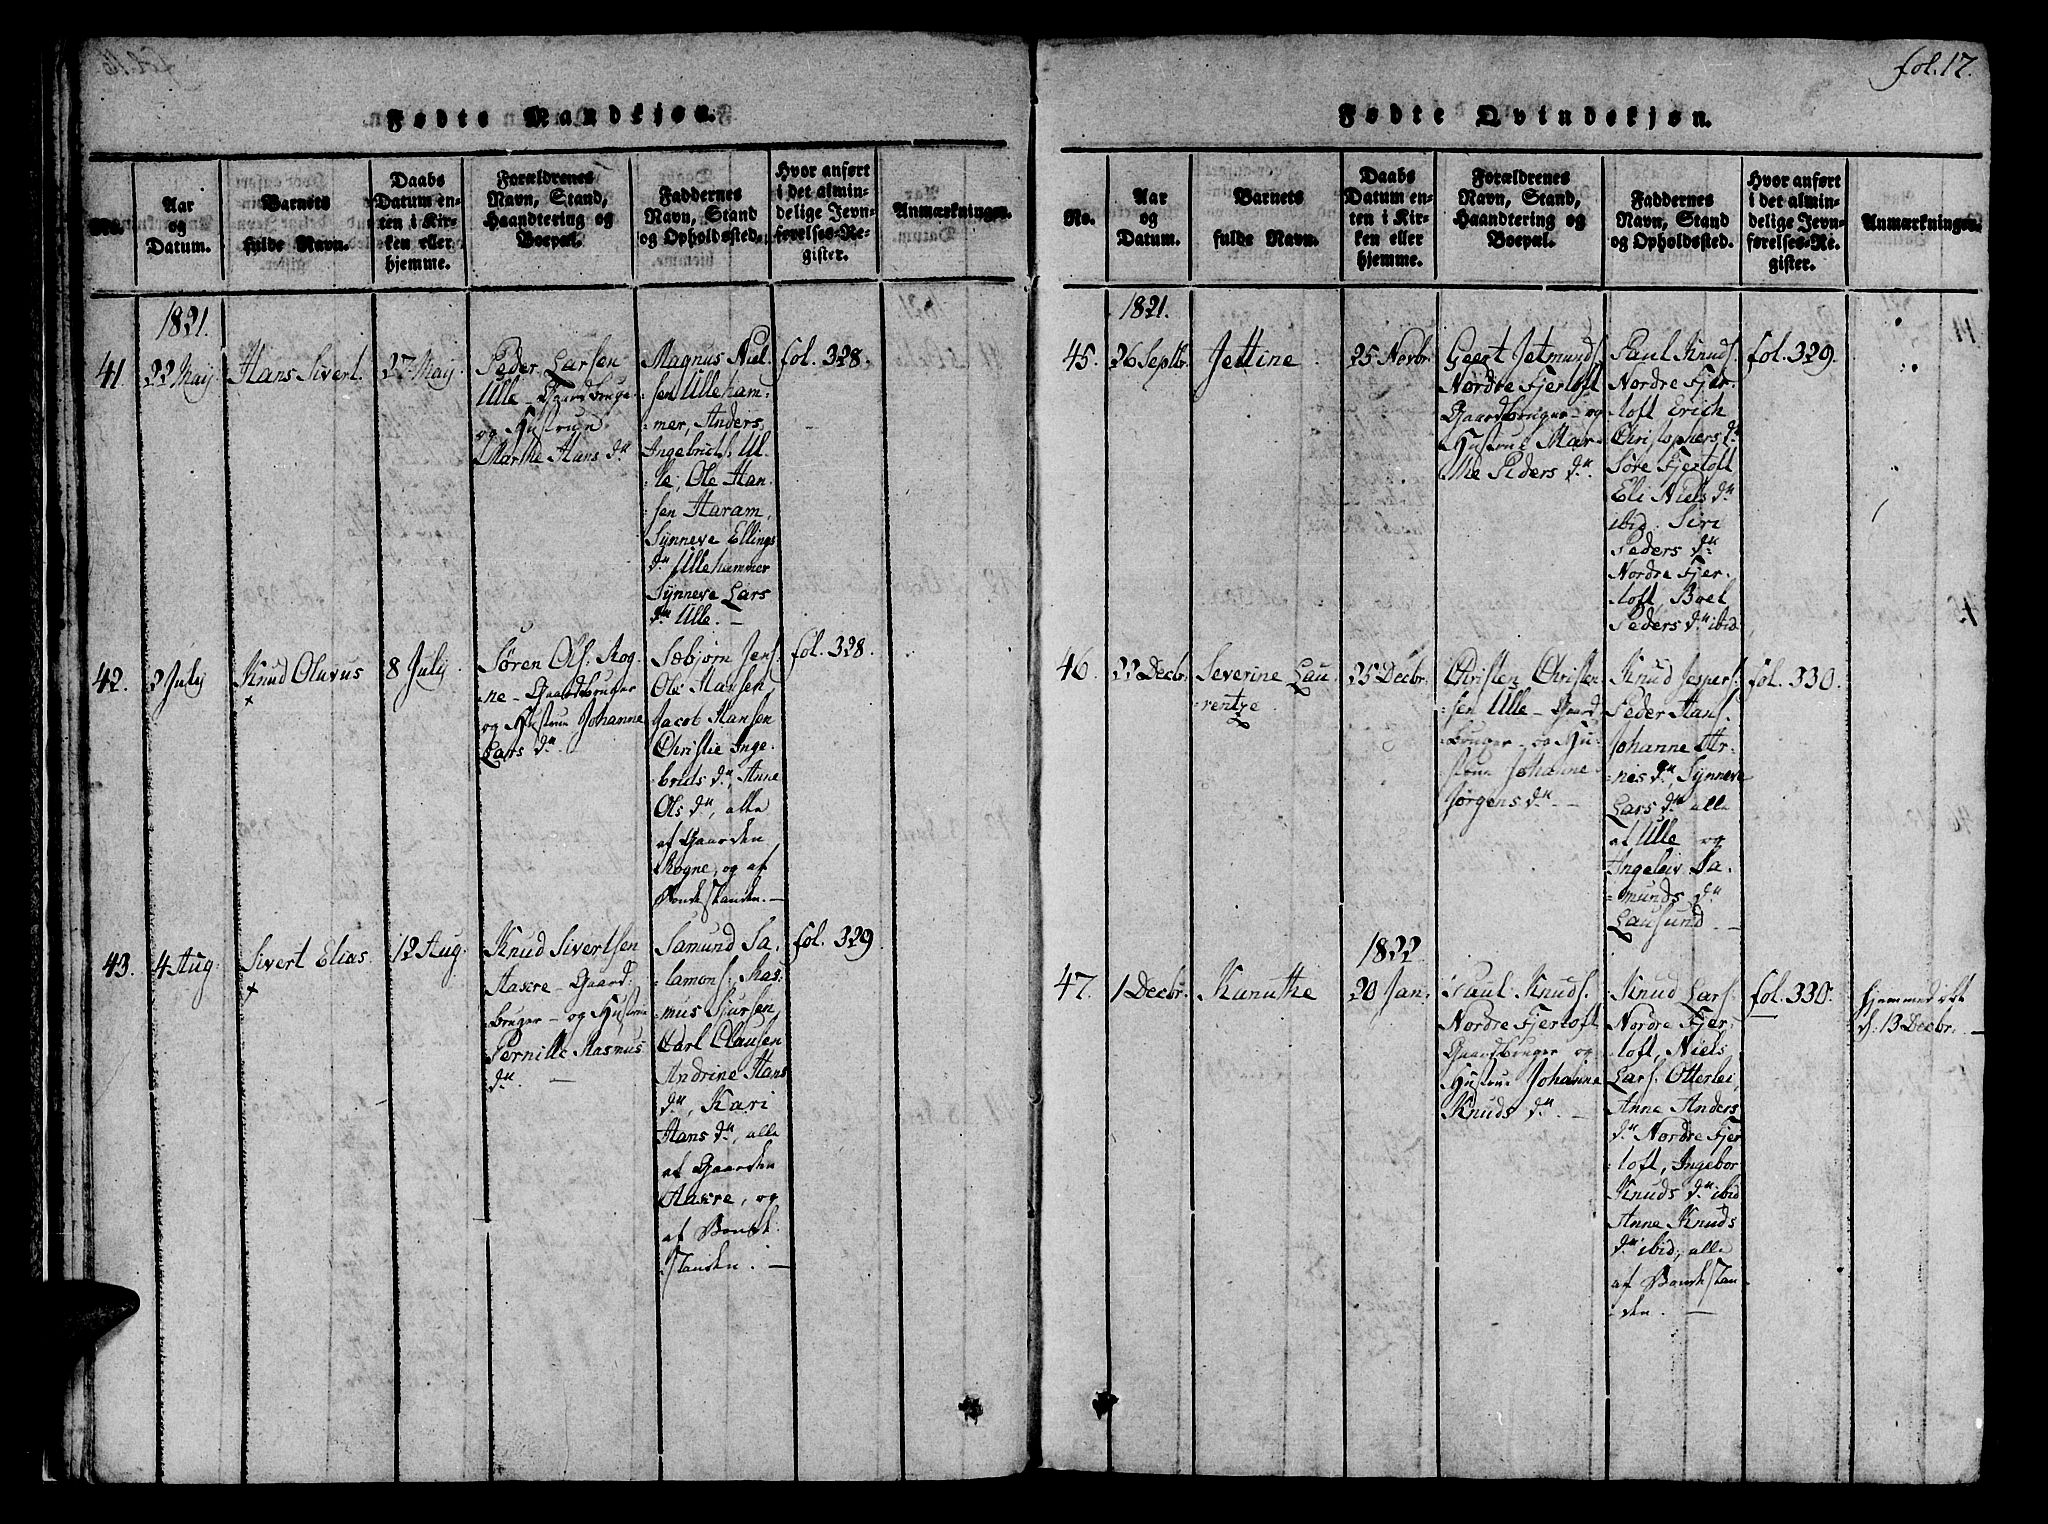 Fødte Mandkjøn.
No.
Aar
og
Datum.
Barnets
fulde Navn.
Daabs
Datum en-
ten i Kir-
ken eller
hjemme.
Forældrenes
Navn, Stand,
Haandtering og
Boepæl.
Faddernes
Navn, Stand
og Opholdssted.
Hvor anført
i det almin-
delige Jevn-
førelses-Re-
gister.
Anmærkninger.
1821.
41.
22 Maij
Hans Sivert.
27 Maij
Peder Larsen
Ulle – Gaardbruge-
og Hustrue
Marthe Hans d.
Magnus Niel-
sen Ulleham-
mer, Anders
Ingebrict. Ul-
le, Ole Han-
sen Haram,
Synneve Ellings
d. Ullehammer
Synneve Lars
d. Ulle. –
fol. 328.
42.
2 July
Knud Oluvus
+
8 July
Søren Ols. Rog-
ne – Gaardbruger
og Hustrue Johanne
Lars d.
Sæbjørn Jens.
Ole Larsen,
Jacob Hansen
Christie Inge-
brids d., Anne
Ols d., alle
af Gaarden
Rogne, og af
Bondestanden. –
fol. 328.
43.
4 Aug.
Sivert Elias
+
12 Aug.
Knud Sivertsen
Aakre – Gaard-
bruger – og Hustrue
Pernille Rasmus
d. –
Samund Sa-
lamons. Ras-
mus Sjursen,
Carl Clausen
Andrine Hans
d., Kari
Hans d., alle
af Gaarden
Aakre, og
af Bonde-
standen. –
fol. 329
fol. 17.
Fødte Qvindekjøn.
No.
Aar
og
Datum.
Barnets
fulde Navn.
Daabs
Datum en-
ten i Kir-
ken eller
hjemme.
Forældrenes
Navn, Stand,
Haandtering og
Boepæl.
Faddernes
Navn, Stand
og Opholdssted.
Hvor anført
i det almin-
delige Jevn-
førelses-Re-
gister.
Anmærkninger.
1821.
45.
26 Septbr.
Jettine
25 Novbr.
Geert Jetmunds.
Nordre Fjertoft
Gaardbruger – og
Hustrue Mar-
the Peders d.
Paul Knuds.
Nordre Fjer-
toft Erich
Christophers d.
Søre Fjertoft
Eli Niels d.
ibid. Siri
Peders d.
Nordre Fjer-
toft Boel
Peders d. ibid.
fol. 329.
46.
22 Decbr.
Severine Lau-
rentze.
25 Decbr.
Christen Christen-
sen Ulle – Gaard-
bruger – og Hu-
strue Johanne
Jørgens d. –
Knud Jespers.
Peder Hans.
Johanne Ar-
nes d. Synneve
Lars d. alle
af Ulle og
Ingeleiv Sa-
munds d.
Lausund –
fol. 330.
1822
47.
1 Decbr.
Kanuthe
20 Jan.
Paul Knuds.
Nordre Fjertoft
Gaardbruger og
Hustrue Johanne
Knuds d. –
Knud Lars.
Nordre Fjer-
toft, Niels
Lars. Otterlei,
Anne Anders
d. Nordre Fjer-
toft, Ingebor
Knuds d. ibid
Anne Knuds
d. ibid, alle
af Bondestan-
den. –
fol. 330.
hjemmedøbt
d. 13 Decbr. –